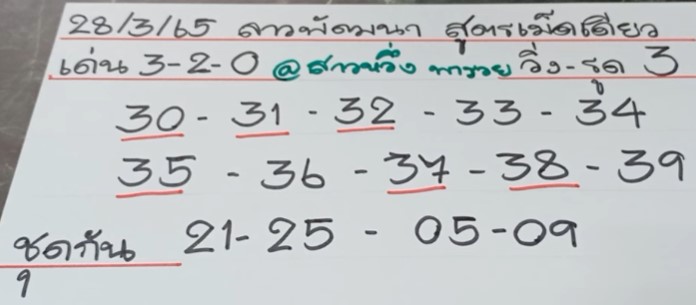 28/3/65 ลาวพัฒนา สูตรเม็ดเดียว
เด่น 3-2-0 @สาวหวึ่ง พารวย วิ่ง-รูด 3
30 - 31 - 32 - 33 - 34
35 - 36 - 37 - 38 - 39
ชุดกัน 21-25 - 05-09